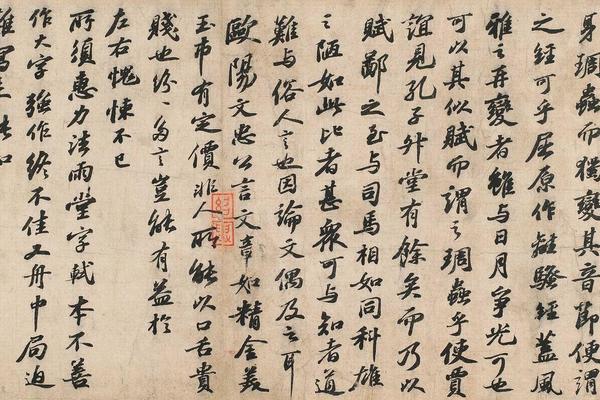 身琱蟲而獨變其音節便謂
之經可乎屈原作離騷經蓋風
雅之再變者雖与日月爭光可也
可以其似賦而謂之琱蟲乎使賈
誼見孔子升堂有餘矣而乃以
賦鄙之至与司馬相如同科雄
之陋如此比者甚衆可与知者道
難与俗人言也因論文偶及之耳
歐陽文忠公言文章如精金美
玉市有定價非人所能以口舌貴
賤也紛紛多言豈能有益於
左右愧悚不已
所須惠力法雨堂字軾本不善
作大字強作終不佳又舟中局迫